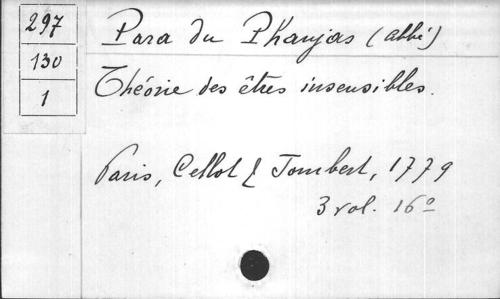 297
130
1
Para du Phanjas (abbé)
Théorie des êtres insensibles.
Paris, Cellot & Jombert, 1779
3 vol. 16°